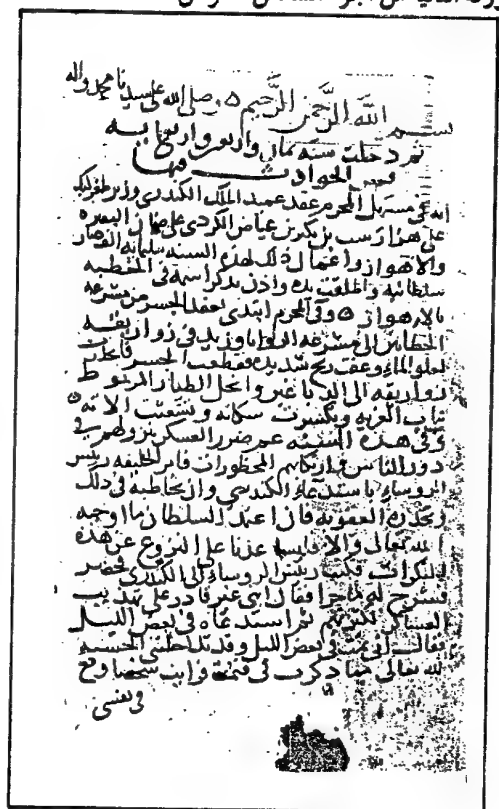 بسم الله الرحمن الرحيم وصلى الله على سيدنا محمد واله
ثم دخلت سنة ثمان واربعين واربعمايه
فمن الحوادث فيها
انه في مستهل المحرم عقد عميد الملك الكندري وزير طغرلبك
على هزارسب بن بكر بن عياض الكردي على ضمان البصره
والاهواز واعمال ذلك لهذه السنه بثلثمايه الف دينار
سلطانيه واطلقت يده واذن بذكر اسمه في الخطبه
بالاهواز وفي المحرم ابتدى بعقد الجسر من مشرعه
الحطابين الى مشرعه الروايا وزيد في زواريقه
لعلو الماء وعصفت ريح شديده فقطعت الجسر
زواريقه الى الدباغين وانحل الطيار المربوط
بباب الغربه وتكسرت سكانه وتشعثت الاته
وفي هذه السنه عم ضرر العسكر بنزولهم في
دور الناس وارتكابهم المحظورات فامر الخليفه رييس
الروساء باستدعاء الكندري وان يخاطبه في ذلك
ويحذره العقوبه فان اعتمد السلطان ما اوجبه
الله تعالى والا عن هذه
المنكرات فكتب رييس الروساء الى الكندري فحضر
فشرح له ما جرا فقال اني غير قادر على تهذيب
العساكر لكثرتهم ثم استدعاه في بعض الليل
فقال اني نمت في بعض الليل وقد تداخلتني الخشيه
لله تعالى مما ذكرت في فرايت شخصا وقع
في نفسي